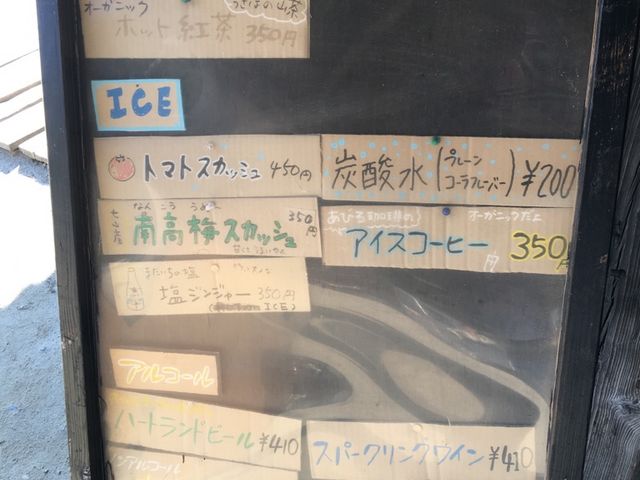 オーガニック
ホット紅茶 350円
ICE
トマトスカッシュ 450円
炭酸水(プレーン コーラフレーバー) ¥200
なんこう うめ
南高梅スカッシュ 350円
オーガニックだよ
アイスコーヒー 350円
塩ジンジャー 350円
ICE)
アルコール
ハートランドビール ¥410
スパークリングワイン ¥410
ノンアルコール